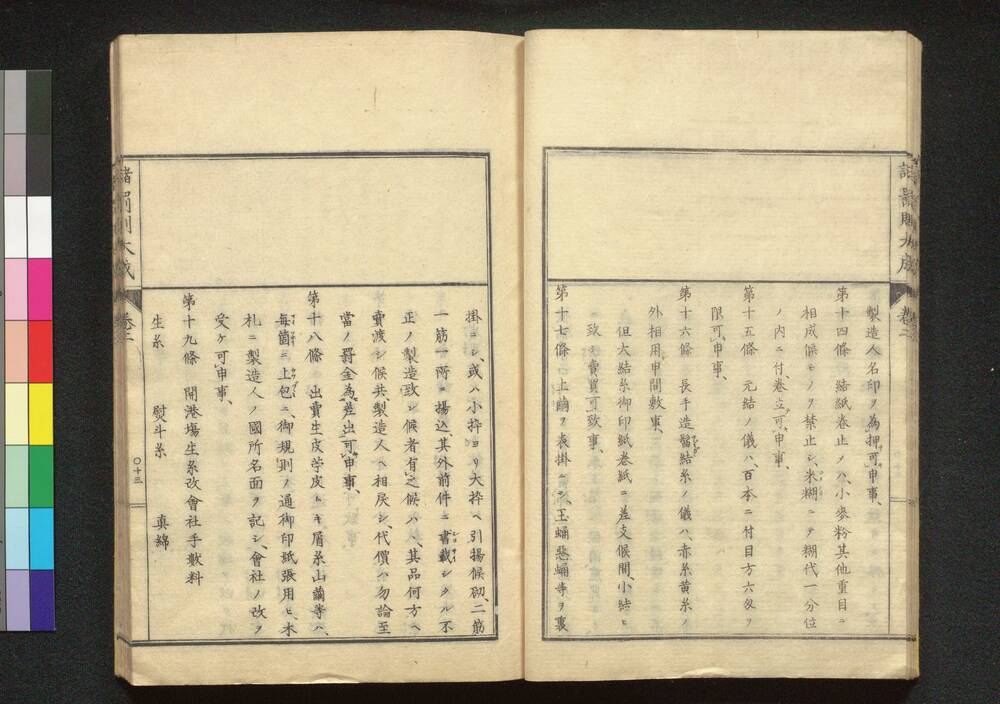 製造人名印ヲ為押可申事、
第十四條　結紙卷止ノハ、小麥粉其他重目ニ
相成候モノヲ禁止シ、米糊ニテ糊代一分位
ノ内ニ付、卷立可申事、
第十五條　元結ノ儀ハ、百本ニ付目方六匁ヲ
限可申事、
第十六條　長手造髷結糸ノ儀ハ、赤糸黄糸ノ
外相用申間敷事、
但大結糸御印紙卷紙ニ差支候間、小結ヒ
致シ賣買可致事、
第十七條　上繭ヲ表掛ニシ、玉蛹惡蛹等ヲ裏
掛ニシ、或ハ小枠ヨリ大枠ヘ引揚候砌、二筋
一筋一所ニ揚込、其外前件ニ書載シタル不
正ノ製造致シ候者有之候ハヽ、其品何方ヘ
賣渡シ候共製造人ヘ相戻シ、代價ハ勿論至
當ノ罸金為差出可申事、
第十八條　出賣生皮苧皮トキ屑糸山繭等ハ、
每箇ニ上包ニ、御規則ノ通御印紙張用ヒ、木
札ニ製造人ノ國所名面ヲ記シ、會社ノ改ヲ
受ケ可申事、
第十九條　開港塲生糸改會社手數料
生糸　熨斗糸　真綿
諸罰則大成　卷二
〇十三